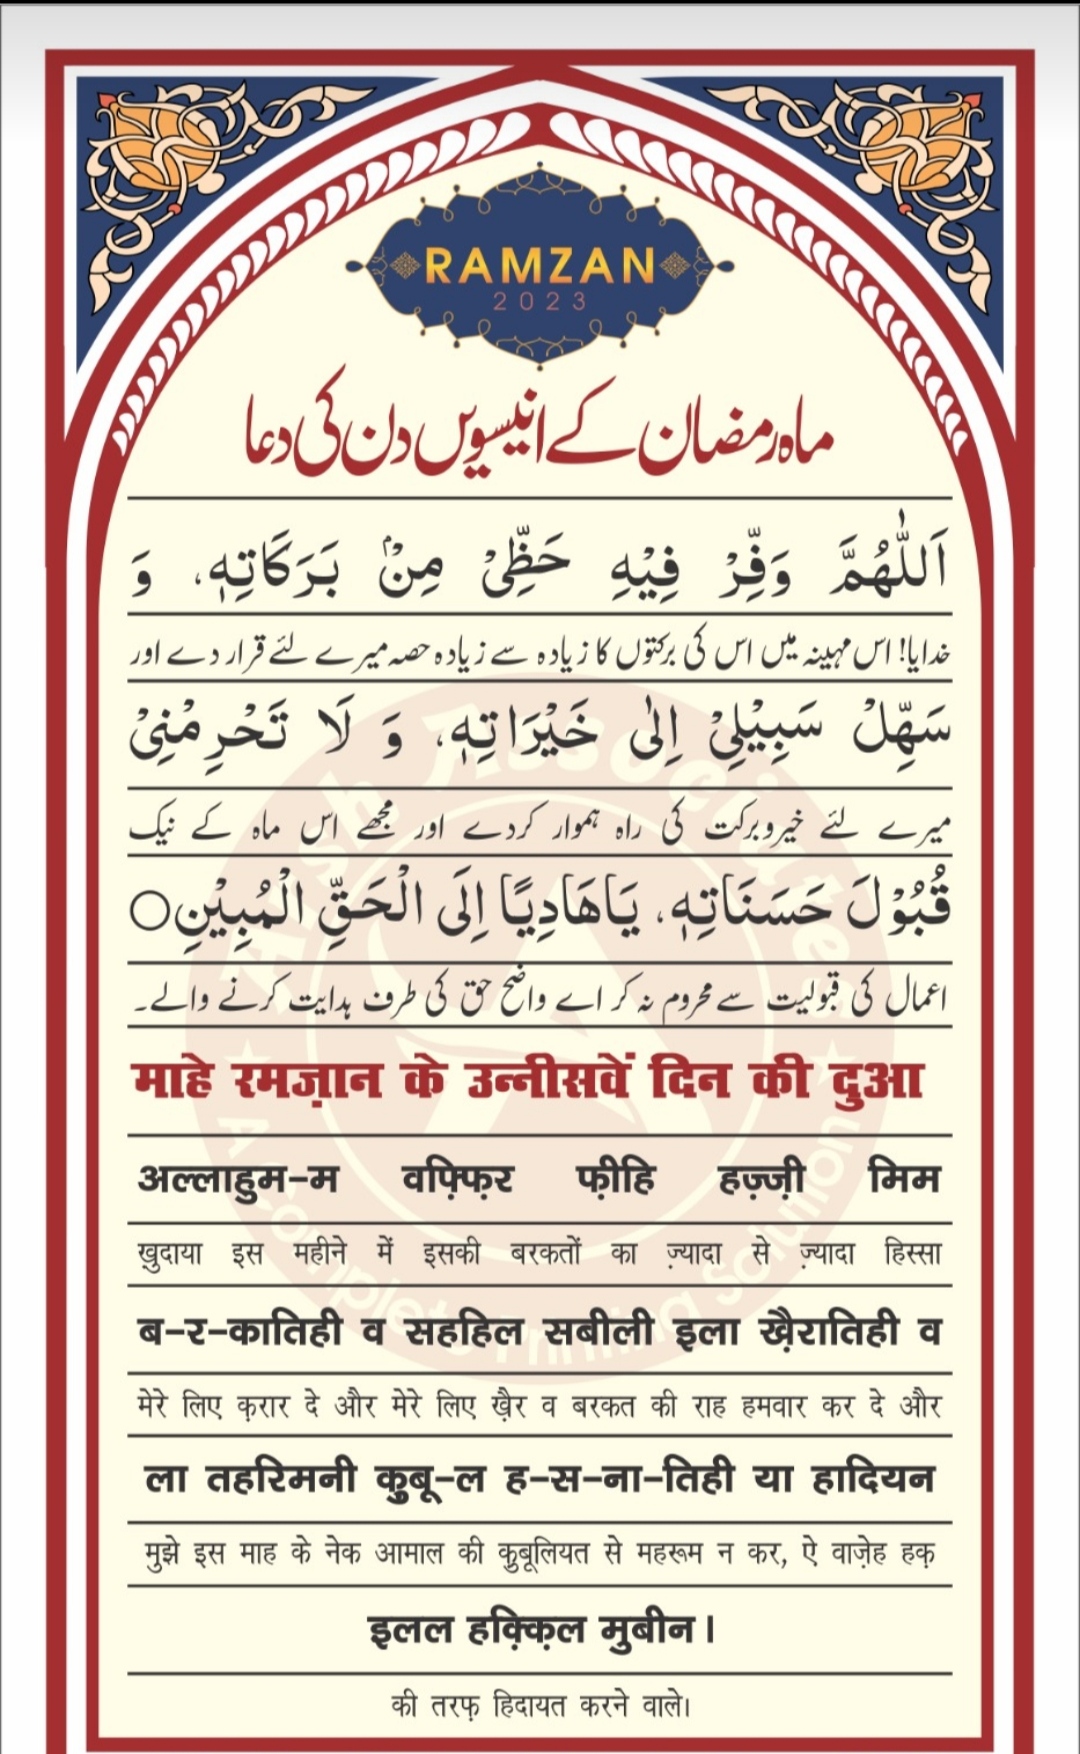 RAMZAN
2023
ماہ رمضان کے انیسویں دن کی دعا
اَللّٰهُمَّ وَفِّرْ فِيْهِ حَظِّىْ مِنْۢ بَرَكَاتِهٖ، وَ
خدایا! اس مہینہ میں اس کی برکتوں کا زیادہ سے زیادہ حصہ میرے لئے قرار دے اور
سَهِّلْ سَبِيْلِىْ اِلٰى خَيْرَاتِهٖ، وَ لَا تَحْرِمْنِىْ
میرے لئے خیر وبرکت کی راہ ہموار کردے اور مجھے اس ماہ کے نیک
قُبُوْلَ حَسَنَاتِهٖ، يَاهَادِيًا اِلَى الْحَقِّ الْمُبِيْنِ○
اعمال کی قبولیت سے محروم نہ کر اے واضح حق کی طرف ہدایت کرنے والے۔
माहे रमज़ान के उन्नीसवें दिन की दुआ
अल्लाहुम-म वफ़्फ़िर फ़ीहि हज़्ज़ी मिम
ख़ुदाया इस महीने में इसकी बरकतों का ज़्यादा से ज़्यादा हिस्सा
ब-र-कातिही व सहहिल सबीली इला ख़ैरातिही व
मेरे लिए क़रार दे और मेरे लिए ख़ैर व बरकत की राह हमवार कर दे और
ला तहरिमनी क़ुबू-ल ह-स-ना-तिही या हादियन
मुझे इस माह के नेक आमाल की क़ुबूलियत से महरूम न कर, ऐ वाज़ेह हक़
इलल हक़्क़िल मुबीन।
की तरफ़ हिदायत करने वाले।